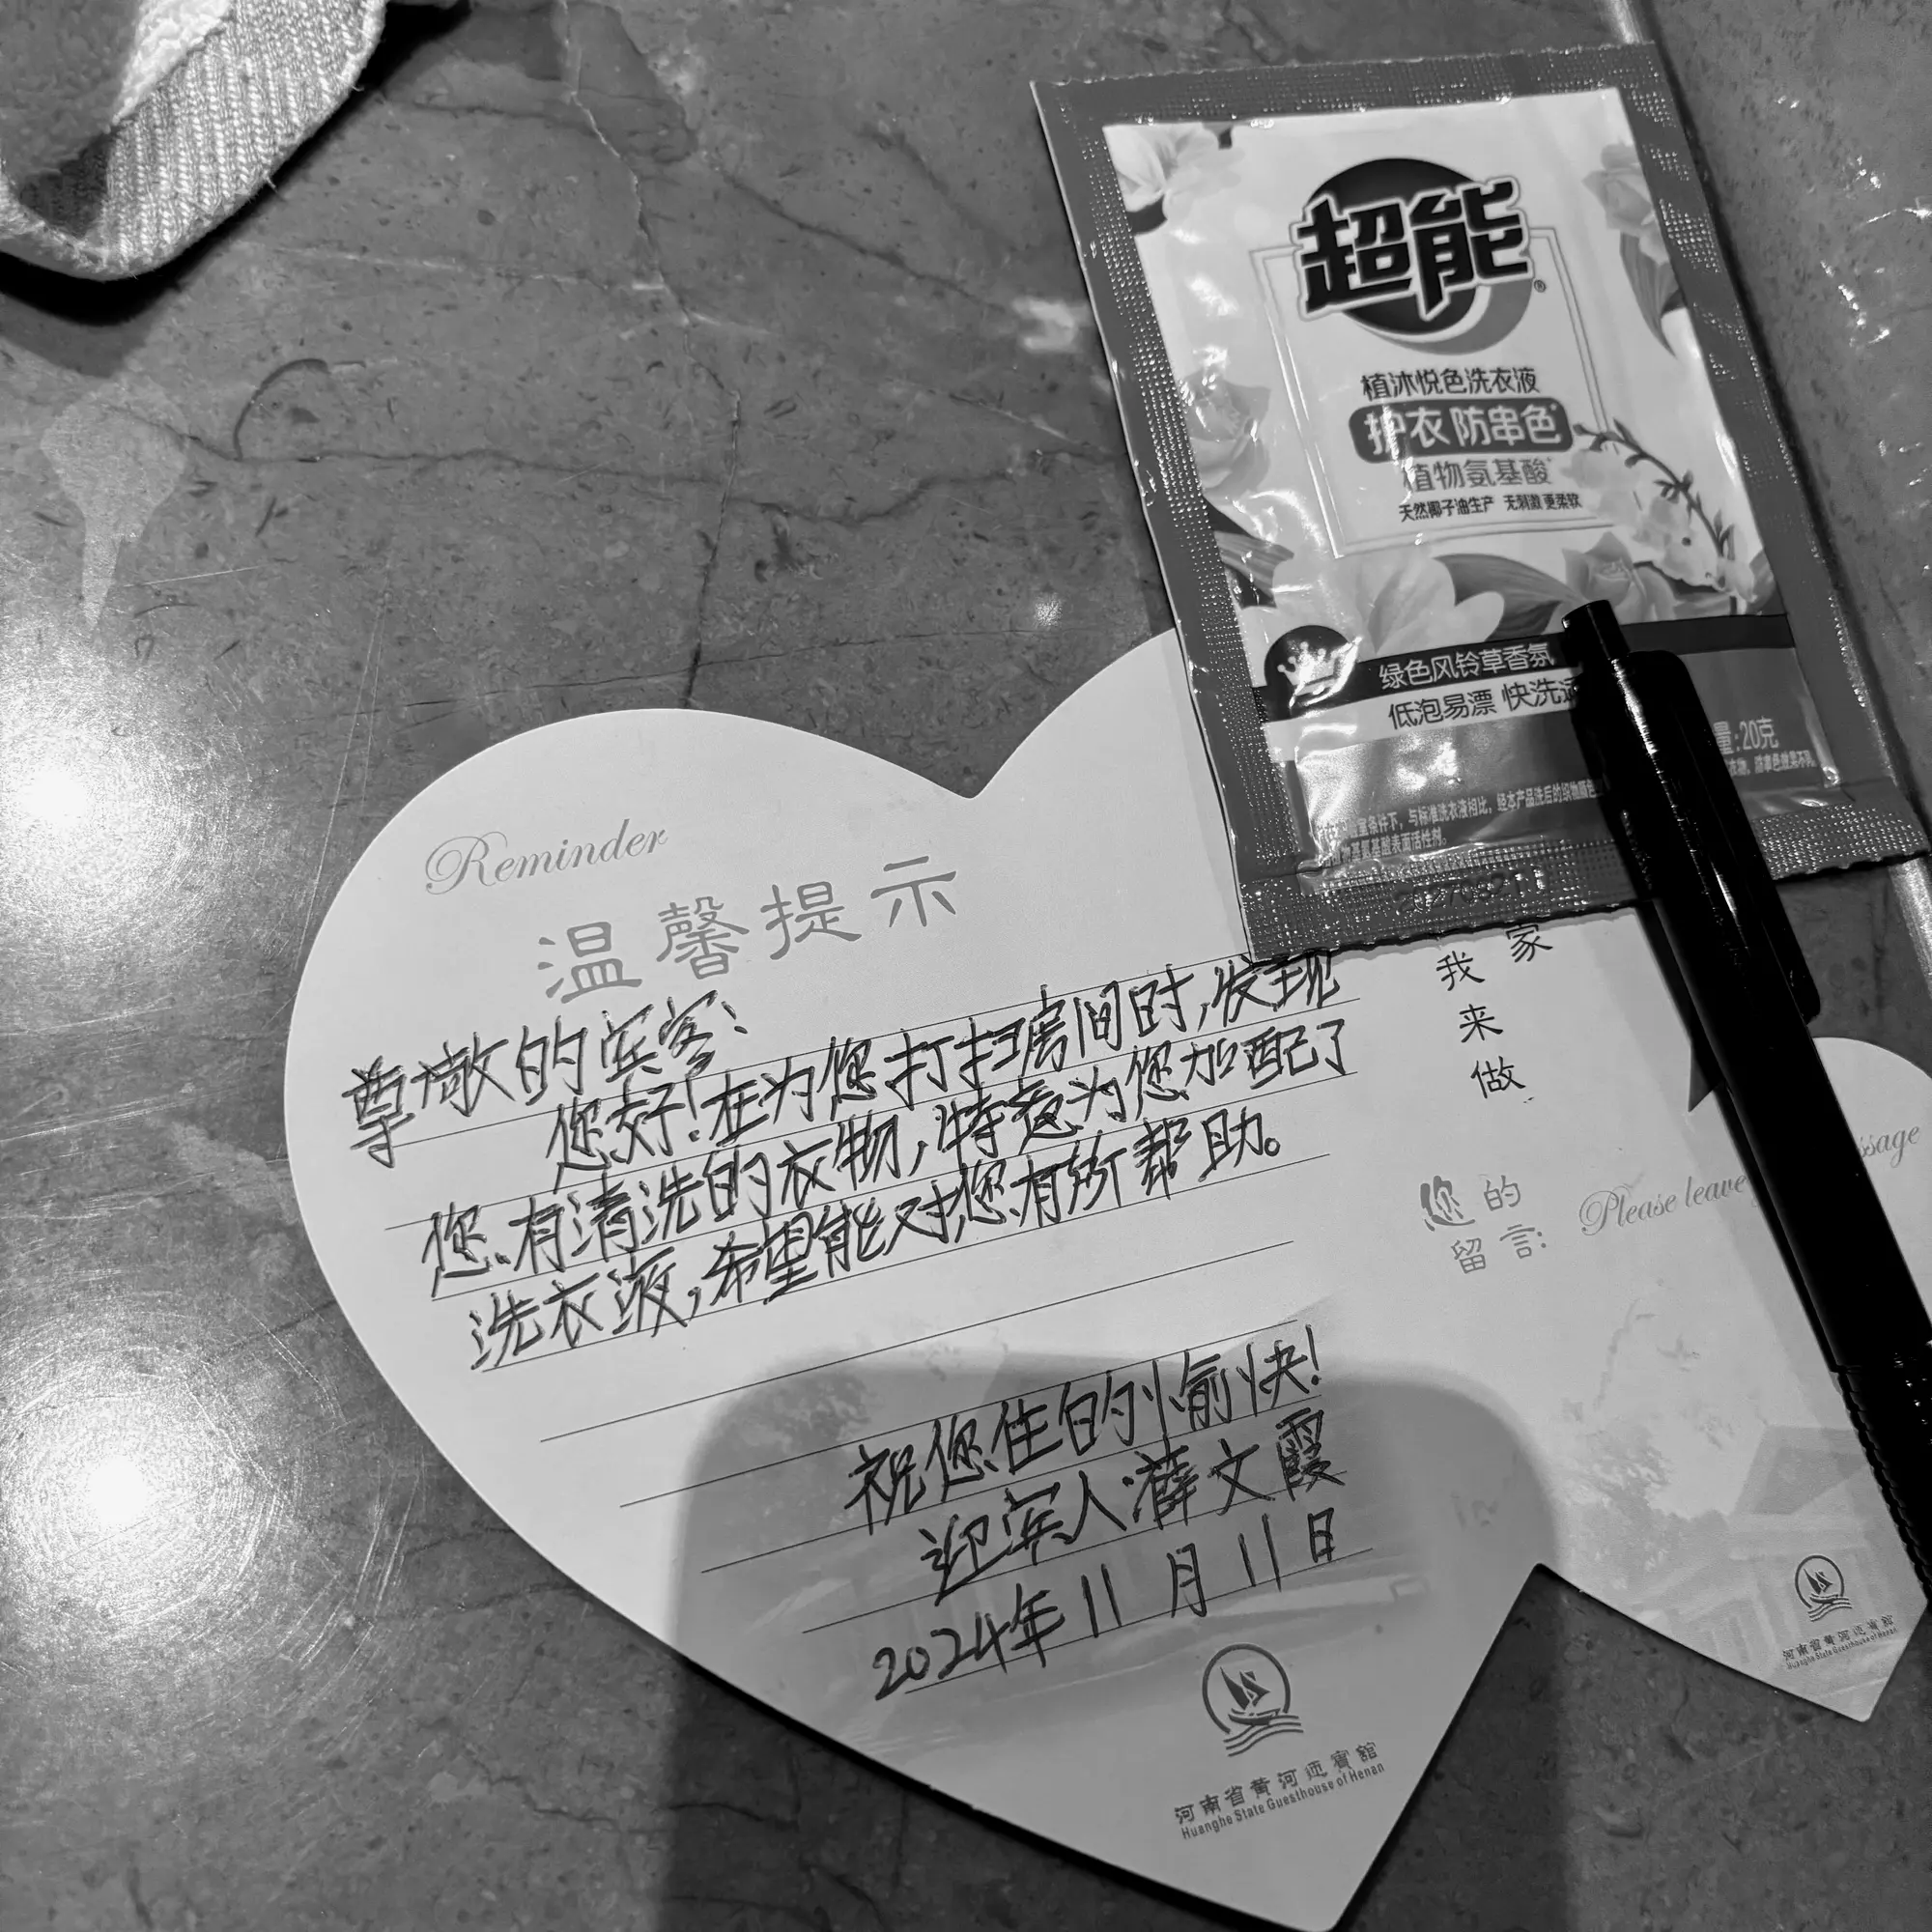 超能®
植沐悦色洗衣液
护衣 防串色
植物氨基酸
天然椰子油生产 无刺激 更柔软
绿色风铃草香氛
低泡易漂 快洗
量:20克
条件下，与标准洗衣液相比，经本产品洗后的织物颜色
氨基酸表面活性剂。
Reminder
温馨提示
尊敬的宾客：
您好！在为您打扫房间时，发现
您有清洗的衣物，特意为您加配了
洗衣液，希望能对您有所帮助。
祝您住的愉快！
迎宾人：薛文霞
2024年11月11日
河南省黄河迎宾館
Huanghe State Guesthouse of Henan
家
我来做
您的
留言：
Please leave
ssage
河南省黄河迎宾館
Huanghe State Guesthouse of Henan